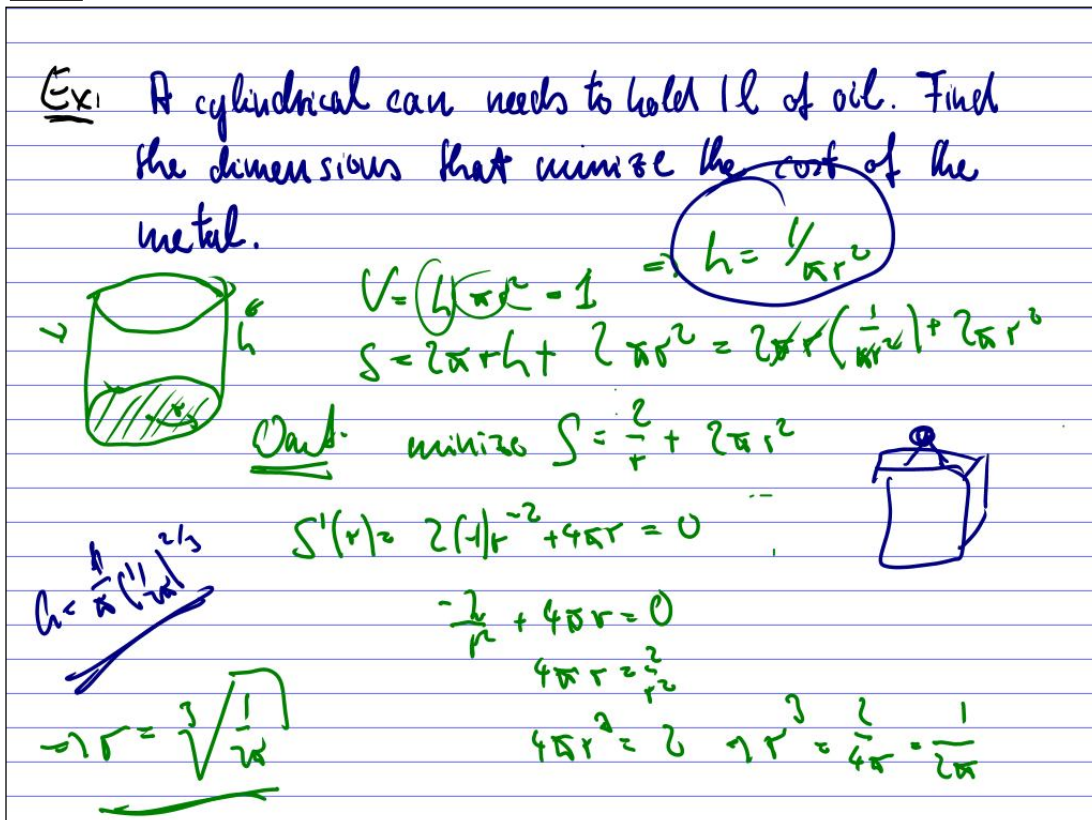 Ex: A cylindrical can needs to hold 1l of oil. Find
the dimensions that minize the cost of the
metal.
⇒ h = 1/πr²
V = h πr² = 1
h
r
S = 2πrh + 2πr² = 2πr(1/πr²) + 2πr²
Want: minize S = 2/r + 2πr²
S'(r) = 2(-1)r⁻² + 4πr = 0
-2/r² + 4πr = 0
4πr = 2/r²
4πr³ = 2 ⇒ r³ = 2/4π = 1/2π
⇒ r = ∛(1/2π)